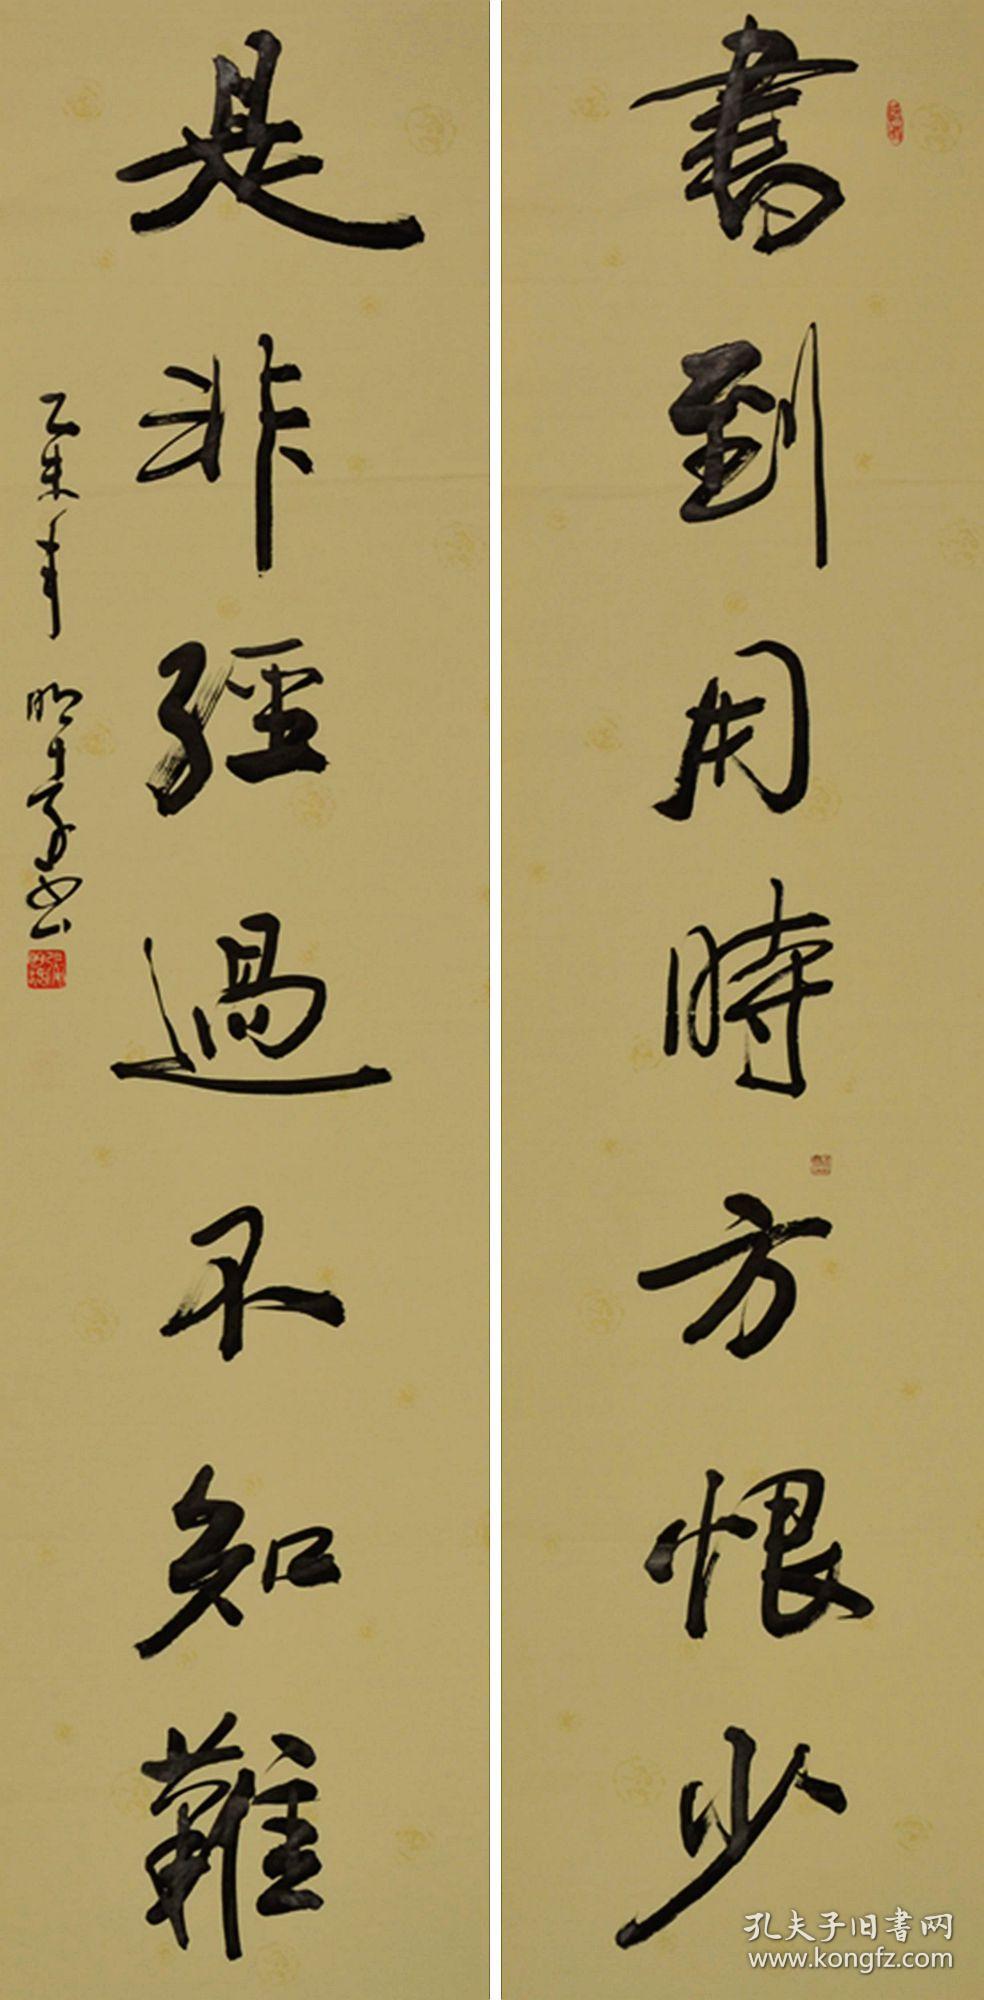 書到用時方恨少
是非經過不知難
乙未年
孔夫子旧書网
www.kongfz.com